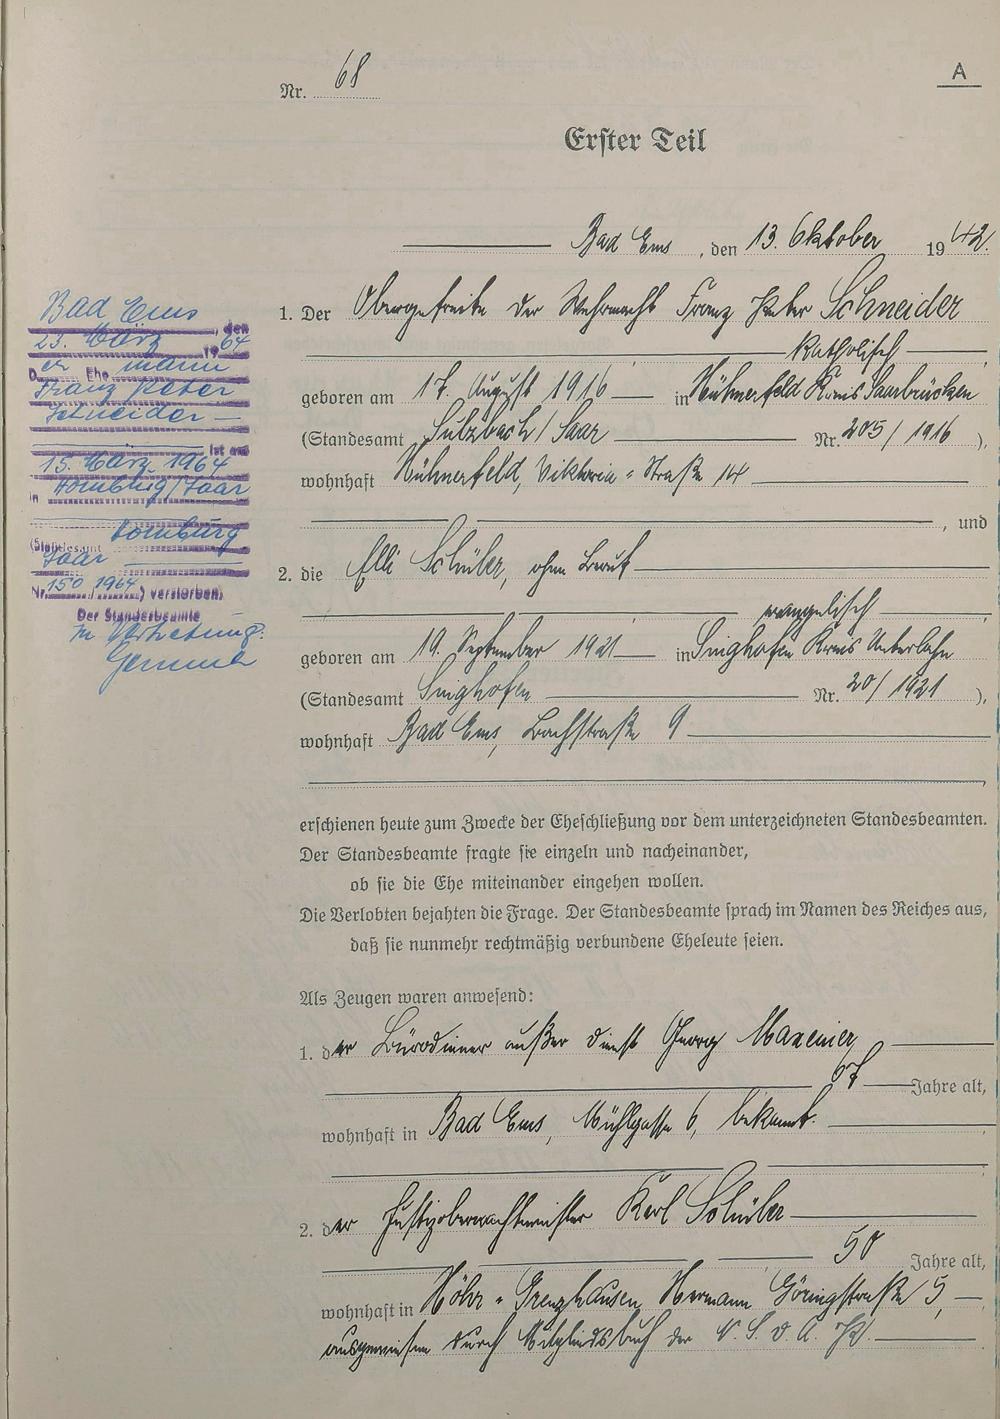 A
Nr. 68
Erster Teil
Bad Ems, den 13. Oktober 1942.
1. Der Obergefreite der Wehrmacht Franz Peter Schneider
katholisch,
geboren am 17. August 1916 in Hühnerfeld Kreis Saarbrücken
(Standesamt Sulzbach/Saar Nr. 205/1916),
wohnhaft Hühnerfeld, Viktoria-Straße 14
, und
2. die Elli Schüler, ohne Beruf
, evangelisch,
geboren am 19. September 1921 in Singhofen Kreis Unterlahn
(Standesamt Singhofen Nr. 20/1921),
wohnhaft Bad Ems, Bachstraße 9
,
erschienen heute zum Zwecke der Eheschließung vor dem unterzeichneten Standesbeamten.
Der Standesbeamte fragte sie einzeln und nacheinander,
ob sie die Ehe miteinander eingehen wollen.
Die Verlobten bejahten die Frage. Der Standesbeamte sprach im Namen des Reiches aus,
daß sie nunmehr rechtmäßig verbundene Eheleute seien.
Als Zeugen waren anwesend:
1. der Bürodiener außer Dienst Georg Maxeiner,
67 Jahre alt,
wohnhaft in Bad Ems, Mühlgasse 6, bekannt.
2. der Justizoberwachtmeister Karl Schüler
50 Jahre alt,
wohnhaft in Höhr-Grenzhausen, Hermann Göringstraße 5,
ausgewiesen durch Mitgliedsbuch der N.S.D.A.P.
Bad Ems, den
23. März 1964
Der Ehemann
Franz Peter
Schneider
ist am
15. März 1964
in Homburg/Saar
(Standesamt Homburg
Saar
Nr. 150/1964) verstorben.
Der Standesbeamte
In Vertretung: